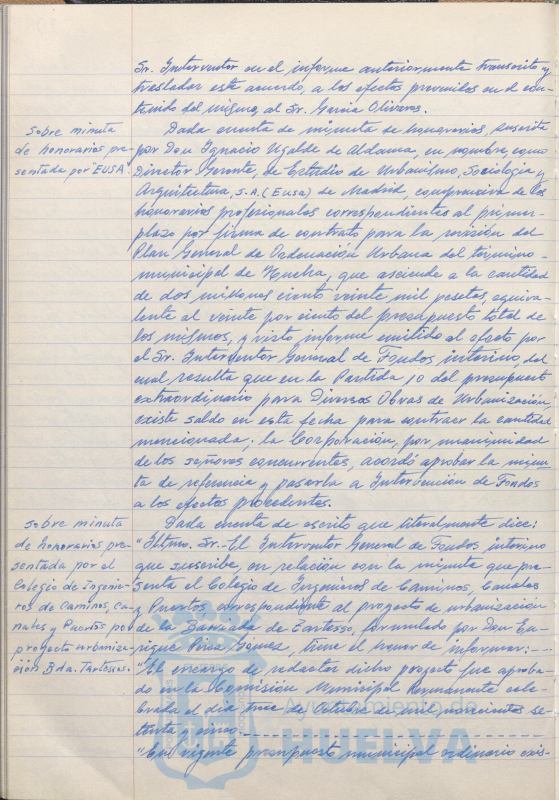 Sr. Interventor en el informe anteriormente transcrito y
trasladar este acuerdo, a los efectos prevenidos en el con-
tenido del mismo, al Sr. García Oliveros.
Sobre minuta
de honorarios pre-
sentada por "EUSA"
Dada cuenta de minuta de honorarios, suscrita
por Don Ignacio Ugalde de Aldama, en nombre como
Director Gerente, de Estudio de Urbanismo, Sociología y
Arquitectura, S.A. (Eusa) de Madrid, comprensiva de los
honorarios profesionales correspondientes al primer
plazo por firma de contrato para la revisión del
Plan General de Ordenación Urbana del término
municipal de Huelva, que asciende a la cantidad
de dos millones ciento veinte mil pesetas, equiva-
lente al veinte por ciento del presupuesto total de
los mismos, y visto informe emitido al efecto por
el Sr. Interventor General de Fondos interino, del
cual resulta que en la Partida 10 del presupuesto
extraordinario para Diversas Obras de Urbanización
existe saldo en esta fecha para contraer la cantidad
mencionada; la Corporación, por unanimidad
de los señores concurrentes, acordó aprobar la minu-
ta de referencia y pasarla a Intervención de Fondos
a los efectos procedentes.
Sobre minuta
de honorarios pre-
sentada por el
Colegio de Ingenie-
ros de Caminos, Ca-
nales y Puertos por
proyecto urbaniza-
ción Bda. Tartessos.
Dada cuenta de escrito que literalmente dice:
"Iltmo. Sr.- El Interventor General de Fondos interino
que suscribe, en relación con la minuta que pre-
senta el Colegio de Ingenieros de Caminos, Canales
y Puertos, correspondiente al proyecto de urbanización
de la Barriada de Tartesso, formulado por Don En-
rique Gómez, tiene el honor de informar:-
"El encargo de redactar dicho proyecto fue aproba-
do en la Comisión Municipal Permanente cele-
brada el día trece de Octubre de mil novecientos se-
tenta y cinco.-
"En vigente presupuesto municipal ordinario exis-
Ayuntamiento de
HUELVA